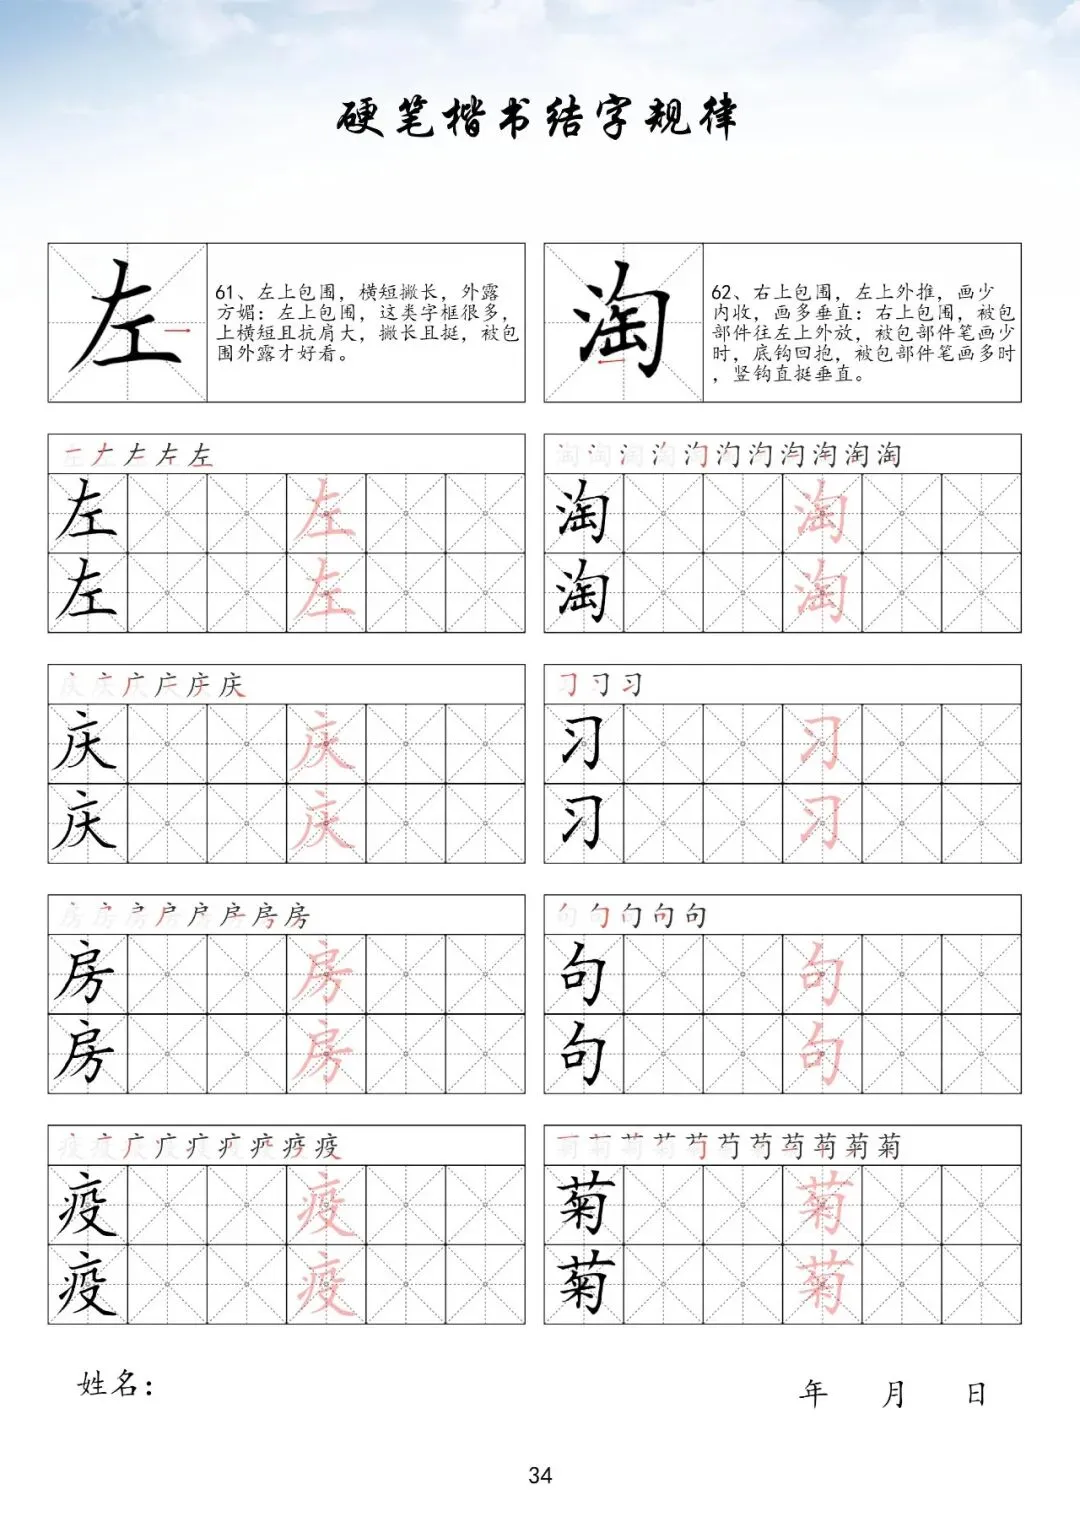 硬笔楷书结字规律
左
61、左上包围，横短撇长，外露
方媚：左上包围，这类字框很多，
上横短且抗肩大，撇长且挺，被包
围外露才好看。
淘
62、右上包围，左上外推，画少
内收，画多垂直：右上包围，被包
部件往左上外放，被包部件笔画少
时，底钩回抱，被包部件笔画多时
，竖钩直挺垂直。
左 左
左 左
淘 淘
淘 淘
庆 庆
庆 庆
习 习
习 习
房 房
房 房
句 句
句 句
疫 疫
疫 疫
菊 菊
菊 菊
姓名：
年 月 日
34